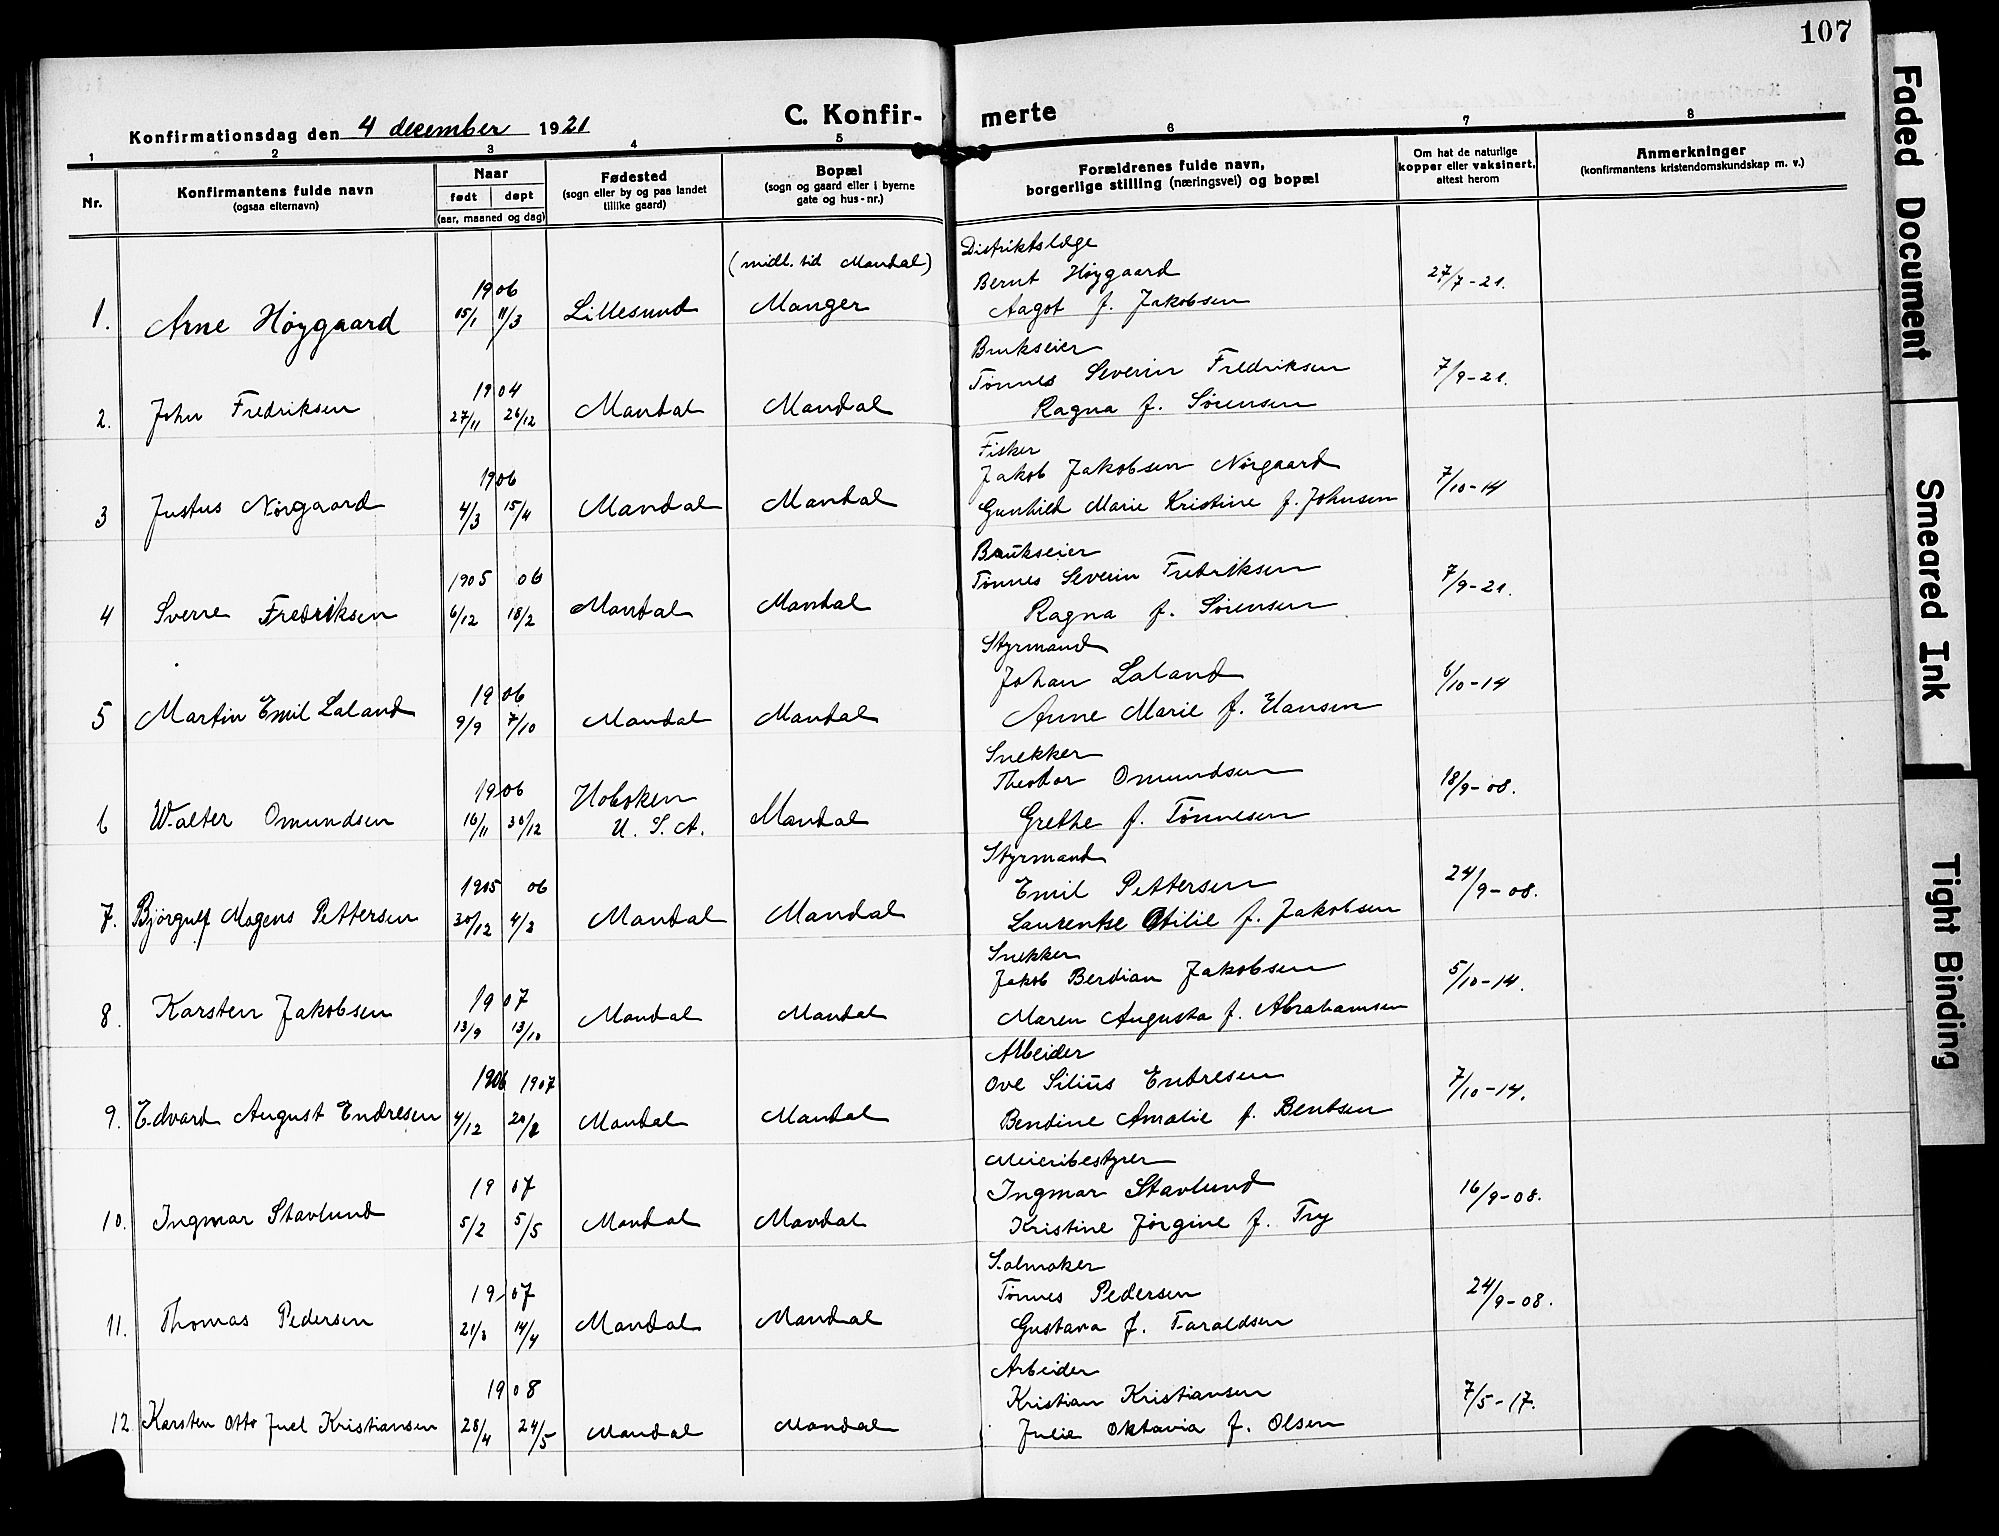 107
C. Konfir- merte
Konfirmationsdag den 4 december 1921
1 2 3 4 5 6 7 8
Nr.
Konfirmantens fulde navn
(ogsaa efternavn)
Naar
født døpt
(aar, maaned og dag)
Fødested
(sogn eller by og paa landet
tillike gaard)
Bopæl
(sogn og gaard eller i byerne
gate og hus-nr.)
Forældrenes fulde navn,
borgerlige stilling (næringsvei) og bopæl
Om hat de naturlige
kopper eller vaksinert,
attest herom
Anmerkninger
(konfirmantens kristendomskundskap m. v.)
(midl. tid Mandal) Distriktslæge
1906 Bernt Høygaard 27/7-21.
1. Arne Høygaard 15/1 11/3 Lillesund Manger Aagot f. Jakobsen
Brukseier
1904 Tønnes Severin Fredriksen 7/9-21.
2. John Fredriksen 27/11 26/12 Mandal Mandal Ragna f. Sørensen
Fisker
1906 Jakob Jakobsen Nørgaard 7/10-14
3 Justus Nørgaard 4/3 15/4 Mandal Mandal Gunhild Marie Kristine f. Johnsen
Brukseier
1905 06 Tønnes Severin Fredriksen 7/9-21.
4 Sverre Fredriksen 6/12 18/2 Mandal Mandal Ragna f. Sørensen
Styrmand
1906 Johan Laland 6/10-14
5 Martin Emil Laland 9/9 7/10 Mandal Mandal Anne Marie f. Hansen
Snekker
1906 Hoboken Theodor Omundsen 18/9-08.
6 Walter Omundsen 16/11 30/12 U. S. A. Mandal Grethe f. Tønnesen
Styrmand
1905 06 Emil Pettersen 24/9-08.
7. Bjørgulf Magens Pettersen 30/12 4/3 Mandal Mandal Laurentse Otilie f. Jakobsen
Snekker
1907 Jakob Berdian Jakobsen 5/10-14.
8. Karsten Jakobsen 13/9 13/10 Mandal Mandal Maren Augusta f. Abrahamsen
Arbeider
1906 1907 Ove Silius Endresen 7/10-14.
9. Edvard August Endresen 4/12 20/2 Mandal Mandal Bendine Amalie f. Bentsen
Meieribestyrer
1907 Ingmar Stavlund 16/9-08.
10. Ingmar Stavlund 5/2 5/5 Mandal Mandal Kristine Jørgine f. Try
Salmaker
1907 Tønnes Pedersen 24/9-08.
11. Thomas Pedersen 21/3 14/4 Mandal Mandal Gustava f. Taraldsen
Arbeider
1908 Kristian Kristiansen 7/5-17.
12 Karsten Otto Juel Kristiansen 28/4 24/5 Mandal Mandal Julie Oktavia f. Olsen
Faded Document
Smeared Ink
Tight Binding